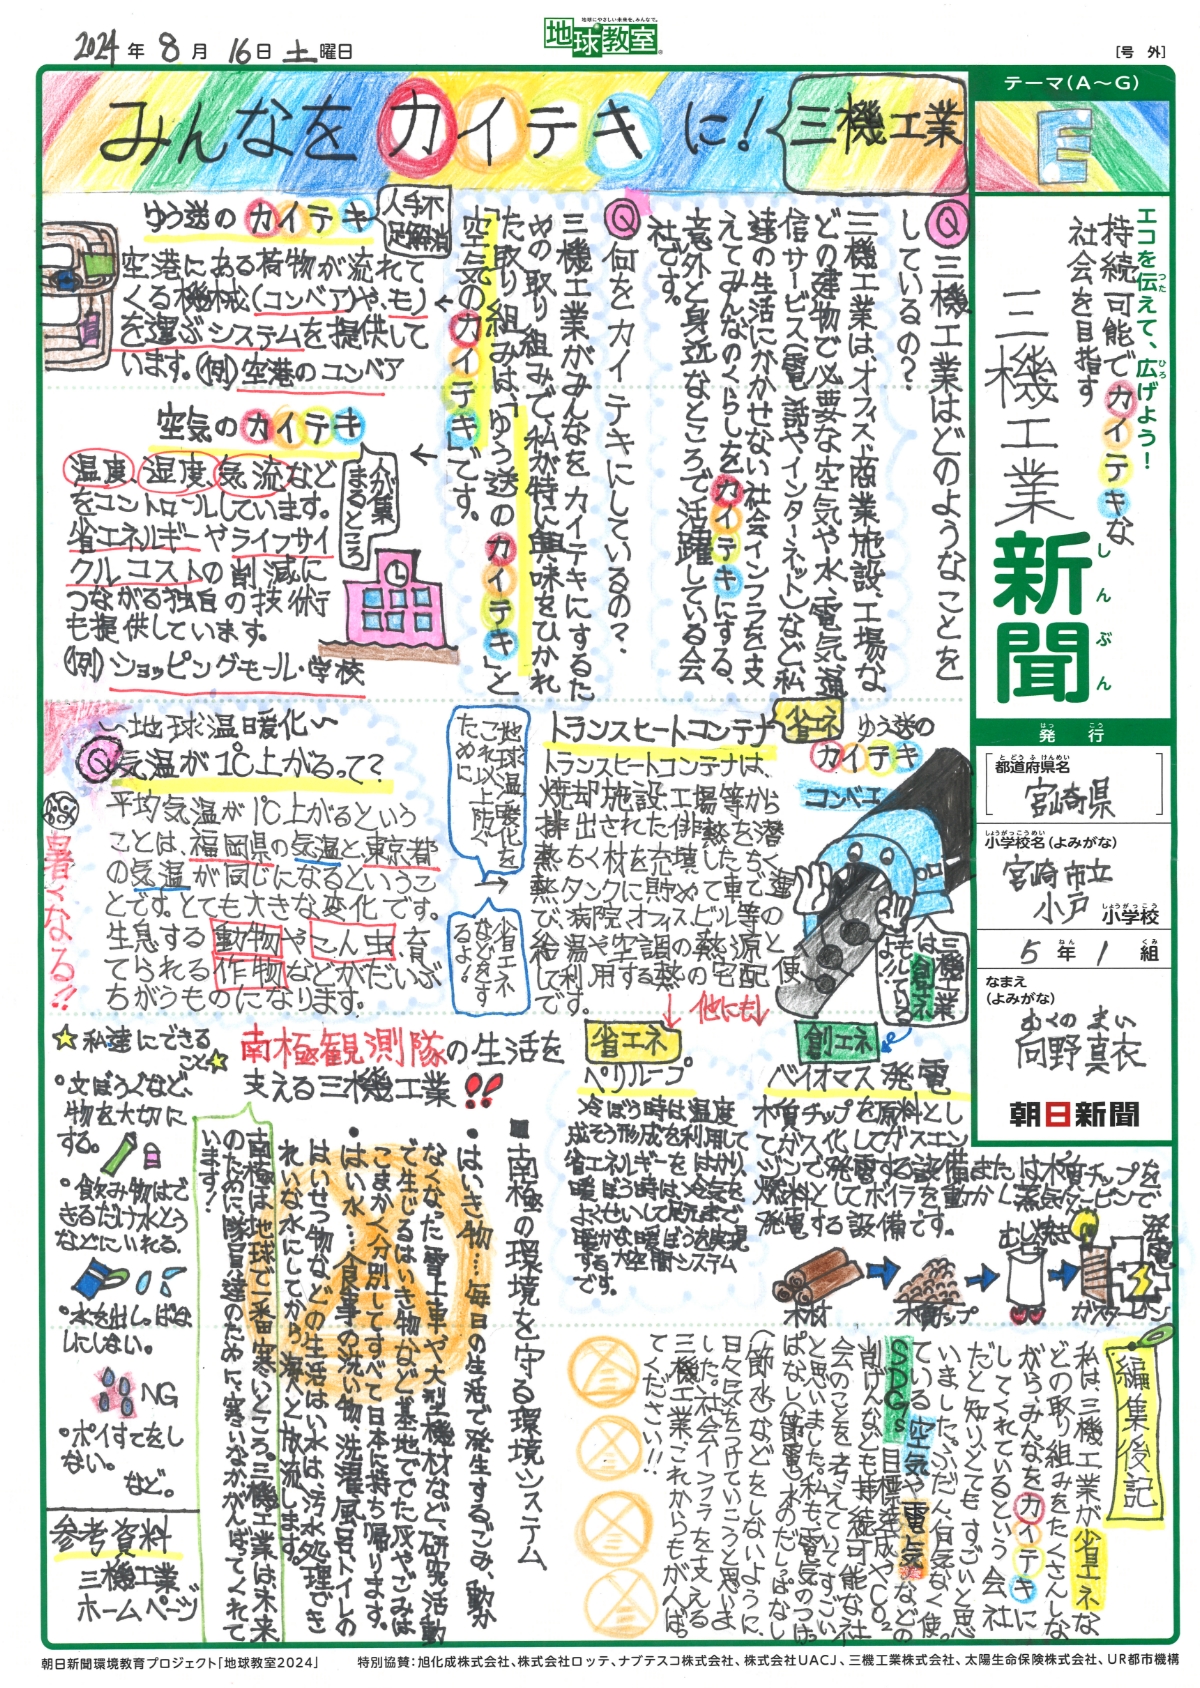 2024年8月16日土曜日
地球にやさしい未来を、みんなで。
地球教室
[号外]
テーマ(A〜G)
E
エコを伝えて、広げよう！
持続可能でカイテキな
社会を目指す
三機工業
新聞
しんぶん
発行
[都道府県名
宮崎県]
小学校名(よみがな)
宮崎市立
小戸小学校
5年1組
なまえ
(よみがな)
むくの まい
向野真衣
朝日新聞
みんなをカイテキに！
三機工業
Q三機工業はどのようなことを
しているの？
三機工業は、オフィス、商業施設、工場な
どの建物で必要な空気や水、電気、通
信サービス(電話やインターネット)など私
達の生活にかかせない社会インフラを支
えてみんなのくらしをカイテキにする、
意外と身近なところで活躍している会
社です。
Q何をカイテキにしているの？
三機工業がみんなをカイテキにするた
めの取り組みで、私が特に興味をひかれ
た取り組みは、「ゆう送のカイテキ」と
「空気のカイテキ」です。
ゆう送のカイテキ
人手不
足解消
空港にある荷物が流れて
くる機械(コンベア)や、も)
を運ぶシステムを提供して
います。(例)空港のコンベア
空気のカイテキ
人が集
まるところ
温度、湿度、気流など
をコントロールしています。
省エネルギーやライフサイ
クルコストの削減に
つながる独自の技術
も提供しています。
(例)ショッピングモール・学校
〜地球温暖化〜
Q気温が1℃上がるって？
平均気温が1℃上がるという
ことは、福岡県の気温と、東京都
の気温が同じになるというこ
とです。とても大きな変化です。
生息する動物やこん虫、育
てられる作物などがだいぶ
ちがうものになります。
暑くなる!!
地球温暖化を
これ以上防ぐ
ために
省エネ
などをす
るよ！
トランスヒートコンテナ
省エネ
トランスヒートコンテナは、
ゆう送の
カイテキ
コンベエ
三機工業
は創エネ
もしている
よ!!
他にも
省エネ
ペリループ
冷ぼう時は温度
創エネ
バイオマス発電
木質チップを原料とし
または木質チップを
蒸し焼き
木材
木質チップ
ガスタービン
発電
☆私達にできる
こと☆
・文ぼうぐなど、
物を大切に
する。
・飲み物はで
きるだけ水とう
などにいれる。
・水を出しっぱな
しにしない。
NG
・ポイすてをし
ない。
など。
参考資料
三機工業
ホームページ
南極観測隊の生活を
支える三機工業!!
■南極の環境を守る環境システム
・はいき物…毎日の生活で発生するごみ、動か
なくなった雪上車や大型機材など、研究活動
で生じるはいき物など基地ででた灰やごみは
こまかく分別してすべて日本に持ち帰ります。
・はい水…食事の洗い物、洗濯、風呂、トイレの
はいせつ物などの生活はい水は、汚水処理でき
れいな水にしてから、海へと放流します。
南極は、地球で一番寒いところ。三機工業は、未来
のために、隊員達のために、寒いなかがんばってくれて
います！
編集後記
私は、三機工業が省エネな
どの取り組みをたくさんしな
がら、みんなをカイテキに
してくれているという会社
だと知り、とてもすごいと思
いました。ふだん何気なく使っ
ている空気や電気などの
SDGs目標達成やCO₂
削げんなども持続可能な社
会のことを考えていてすごい
と思いました。私も、電気のつけっ
ぱなし(節電)、水のだしっぱなし
(節水)などをしないように、
日々気をつけていこうと思いま
した。社会インフラを支える
三機工業、これからもがんば
ってください!!
朝日新聞環境教育プロジェクト「地球教室2024」
特別協賛：旭化成株式会社、株式会社ロッテ、ナブテスコ株式会社、株式会社UACJ、三機工業株式会社、太陽生命保険株式会社、UR都市機構